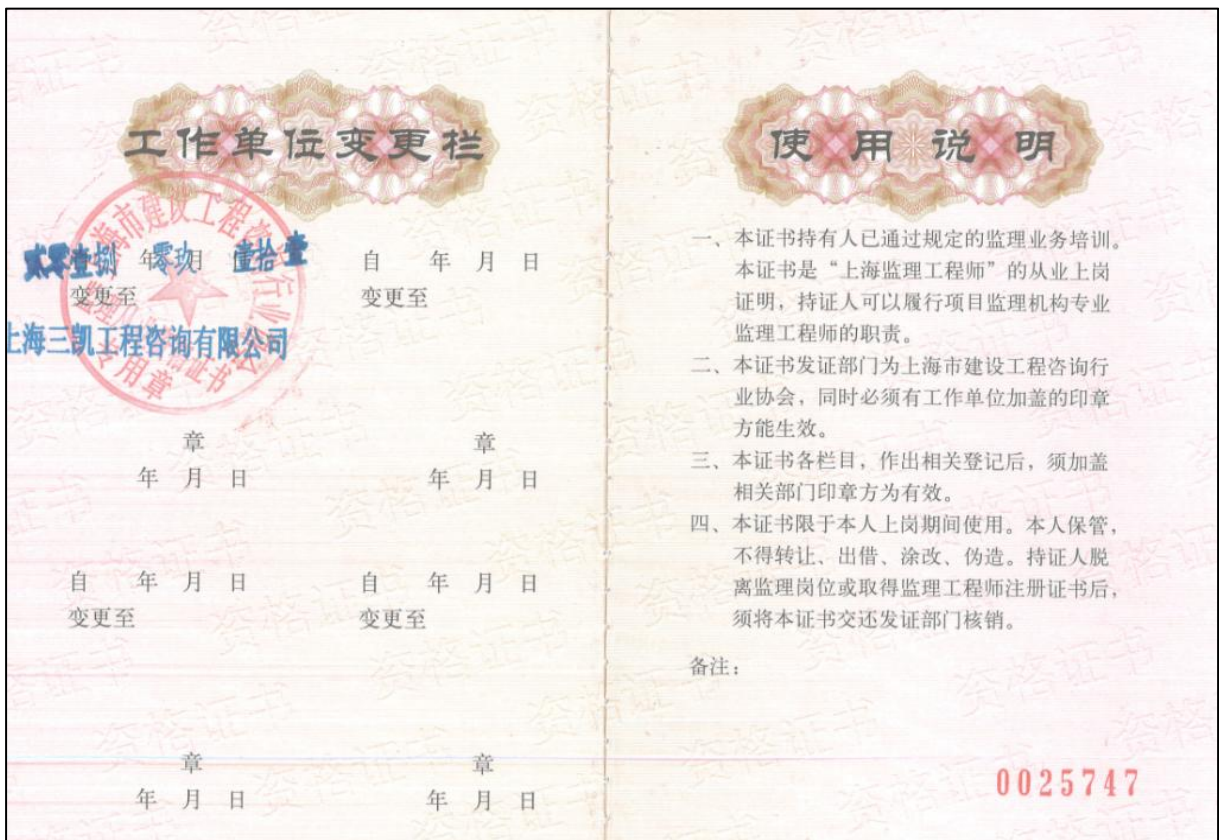 工作单位变更栏
贰零壹捌 年 零玖 月 壹拾壹
变更至
上海三凯工程咨询有限公司
章
年 月 日
自 年 月 日
变更至
章
年 月 日
自 年 月 日
变更至
章
年 月 日
自 年 月 日
变更至
章
年 月 日
使用说明
一、本证书持有人已通过规定的监理业务培训。
本证书是“上海监理工程师”的从业上岗
证明，持证人可以履行项目监理机构专业
监理工程师的职责。
二、本证书发证部门为上海市建设工程咨询行
业协会，同时必须有工作单位加盖的印章
方能生效。
三、本证书各栏目，作出相关登记后，须加盖
相关部门印章方为有效。
四、本证书限于本人上岗期间使用。本人保管，
不得转让、出借、涂改、伪造。持证人脱
离监理岗位或取得监理工程师注册证书后，
须将本证书交还发证部门核销。
备注：
0025747
资格证书